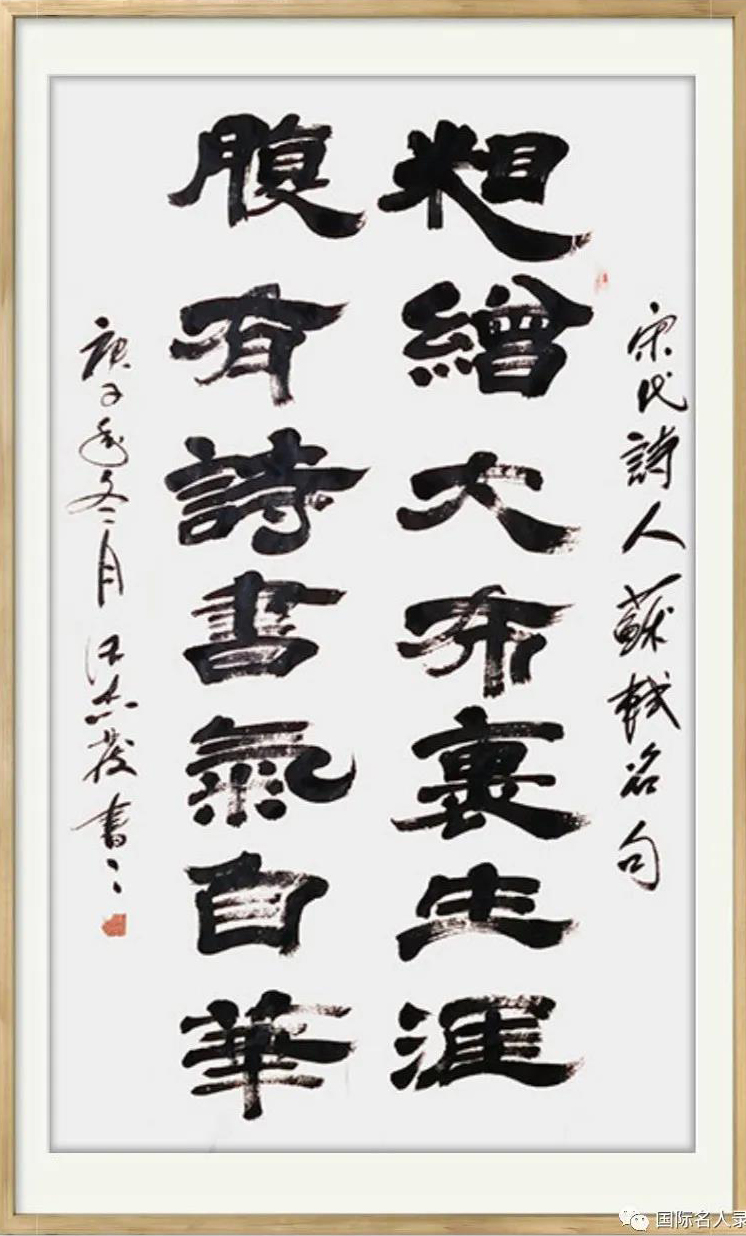 宋代詩人蘇軾名句
粗繒大布裹生涯
腹有詩書氣自華
庚子年冬月
書
国际名人录